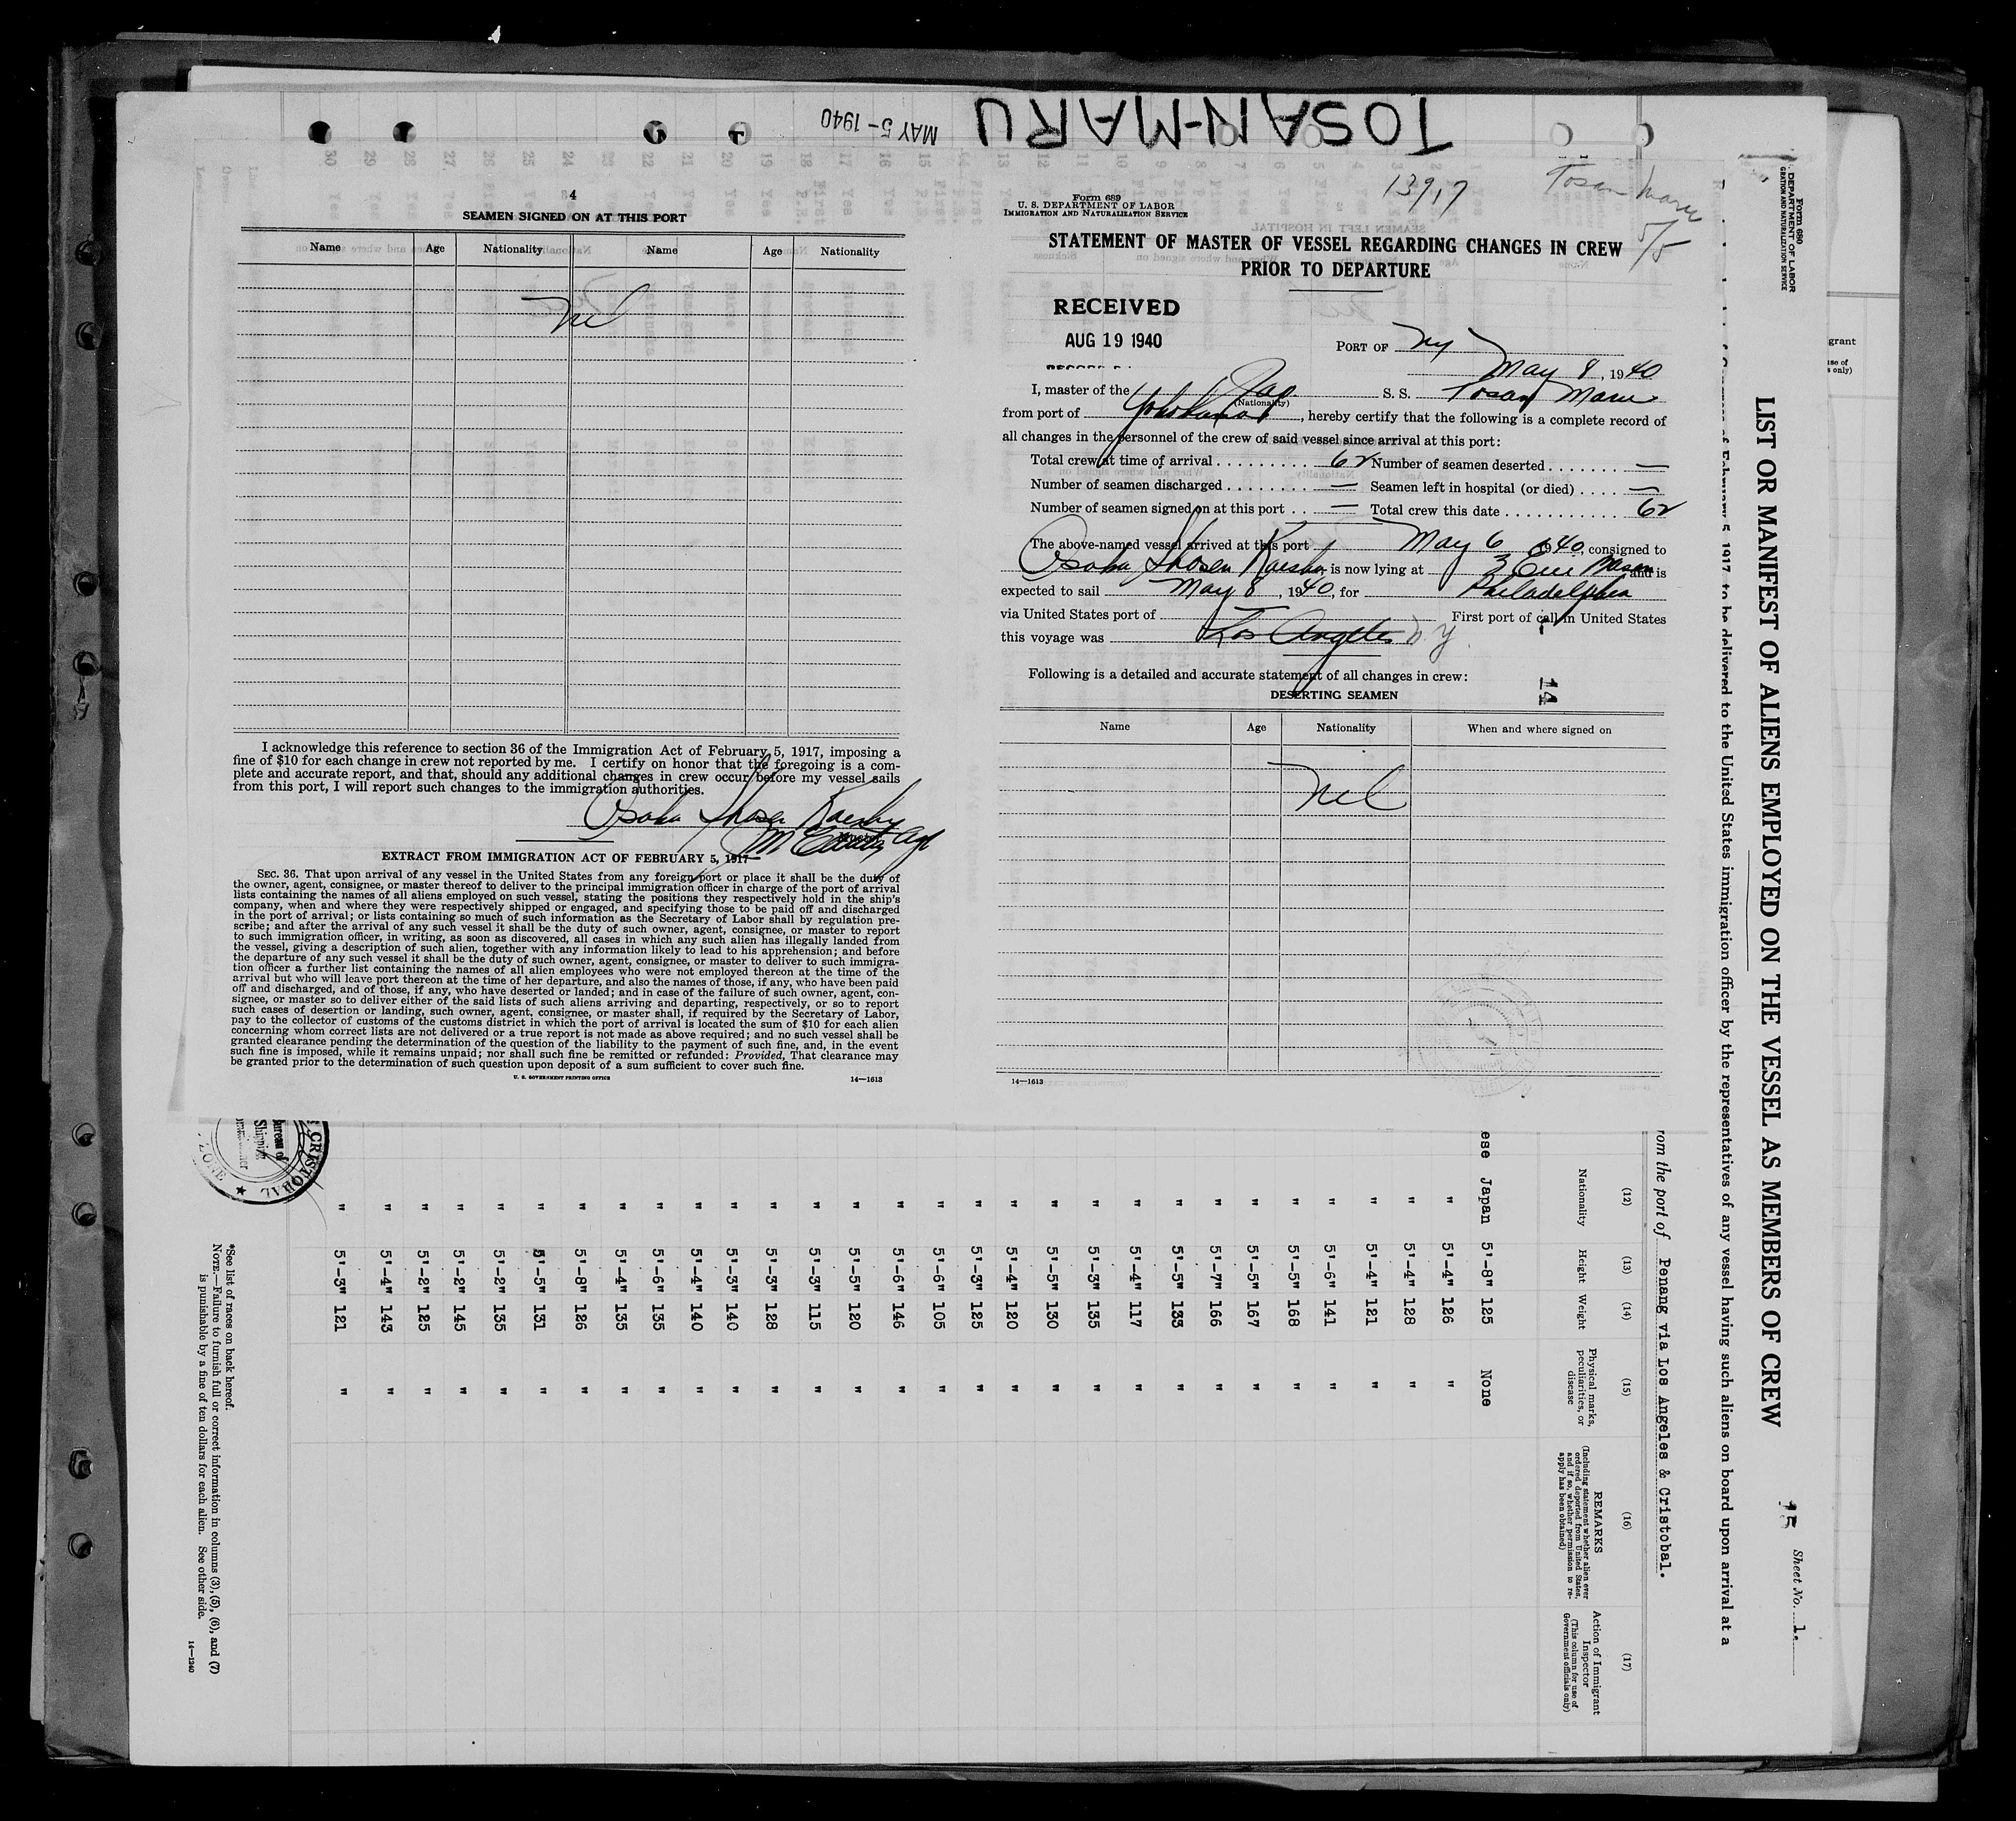 TOSAN-MARU
MAY 5-1940
4
SEAMEN SIGNED ON AT THIS PORT
Name Age Nationality Name Age Nationality
Nil
I acknowledge this reference to section 36 of the Immigration Act of February 5, 1917, imposing a
fine of $10 for each change in crew not reported by me. I certify on honor that the foregoing is a com-
plete and accurate report, and that, should any additional changes in crew occur before my vessel sails
from this port, I will report such changes to the immigration authorities.
Osaka Shosen Kaisha
EXTRACT FROM IMMIGRATION ACT OF FEBRUARY 5, 1917
SEC. 36. That upon arrival of any vessel in the United States from any foreign port or place it shall be the duty of
the owner, agent, consignee, or master thereof to deliver to the principal immigration officer in charge of the port of arrival
lists containing the names of all aliens employed on such vessel, stating the positions they respectively hold in the ship's
company, when and where they were respectively shipped or engaged, and specifying those to be paid off and discharged
in the port of arrival; or lists containing so much of such information as the Secretary of Labor shall by regulation pre-
scribe; and after the arrival of any such vessel it shall be the duty of such owner, agent, consignee, or master to report
to such immigration officer, in writing, as soon as discovered, all cases in which any such alien has illegally landed from
the vessel, giving a description of such alien, together with any information likely to lead to his apprehension; and before
the departure of any such vessel it shall be the duty of such owner, agent, consignee, or master to deliver to such immigra-
tion officer a further list containing the names of all alien employees who were not employed thereon at the time of the
arrival but who will leave port thereon at the time of her departure, and also the names of those, if any, who have been paid
off and discharged, and of those, if any, who have deserted or landed; and in case of the failure of such owner, agent, con-
signee, or master so to deliver either of the said lists of such aliens arriving and departing, respectively, or so to report
such cases of desertion or landing, such owner, agent, consignee, or master shall, if required by the Secretary of Labor,
pay to the collector of customs of the customs district in which the port of arrival is located the sum of $10 for each alien
concerning whom correct lists are not delivered or a true report is not made as above required; and no such vessel shall be
granted clearance pending the determination of the question of the liability to the payment of such fine, and, in the event
such fine is imposed, while it remains unpaid; nor shall such fine be remitted or refunded: Provided, That clearance may
be granted prior to the determination of such question upon deposit of a sum sufficient to cover such fine.
U. S. GOVERNMENT PRINTING OFFICE 14—1613
13917
Tosan Maru
5/5
Form 689
U. S. DEPARTMENT OF LABOR
IMMIGRATION AND NATURALIZATION SERVICE
STATEMENT OF MASTER OF VESSEL REGARDING CHANGES IN CREW
PRIOR TO DEPARTURE
RECEIVED
AUG 19 1940
PORT OF NY
May 8, 1940
I, master of the Jap. S. S. Tosan Maru
(Nationality)
from port of Yokohama, hereby certify that the following is a complete record of
all changes in the personnel of the crew of said vessel since arrival at this port:
Total crew at time of arrival 62 Number of seamen deserted —
Number of seamen discharged — Seamen left in hospital (or died) —
Number of seamen signed on at this port — Total crew this date 62
The above-named vessel arrived at this port May 6 1940, consigned to
Osaka Shosen Kaisha, is now lying at and is
expected to sail May 8, 1940, for Philadelphia
via United States port of — First port of call in United States
this voyage was Los Angeles N.Y.
Following is a detailed and accurate statement of all changes in crew:
14
DESERTING SEAMEN
Name Age Nationality When and where signed on
Nil
14—1613
Form 680
DEPARTMENT OF LABOR
GRATION AND NATURALIZATION SERVICE
15
Sheet No. 1.
LIST OR MANIFEST OF ALIENS EMPLOYED ON THE VESSEL AS MEMBERS OF CREW
February 5, 1917, to be delivered to the United States immigration officer by the representatives of any vessel having such aliens on board upon arrival at a
rom the port of Penang via Los Angeles & Cristobal.
(12) (13) (14) (15) (16) (17)
Nationality Height Weight Physical marks, peculiarities, or disease REMARKS (Including statement whether alien ever ordered deported from United States, and if so, whether permission to re-apply has been obtained) Action of Immigrant Inspector (This column for use of Government officials only)
ese Japan 5'-8" 125 None
" 5'-4" 126 "
" 5'-4" 128 "
" 5'-4" 121 "
" 5'-6" 141 "
" 5'-5" 168 "
" 5'-5" 167 "
" 5'-7" 166 "
" 5'-5" 133 "
" 5'-4" 117 "
" 5'-3" 135 "
" 5'-5" 130 "
" 5'-4" 120 "
" 5'-3" 125 "
" 5'-6" 105 "
" 5'-6" 146 "
" 5'-5" 120 "
" 5'-3" 115 "
" 5'-3" 128 "
" 5'-3" 140 "
" 5'-4" 140 "
" 5'-6" 135 "
" 5'-4" 135 "
" 5'-8" 126 "
" 5'-5" 131 "
" 5'-2" 135 "
" 5'-2" 145 "
" 5'-2" 125 "
" 5'-4" 143 "
" 5'-3" 121 "
CRISTOBAL
ZONE
Bureau of
Shipping
*See list of races on back hereof.
NOTE.—Failure to furnish full or correct information in columns (3), (5), (6), and (7)
is punishable by a fine of ten dollars for each alien. See other side.
14—1240
grant
use of
s only)